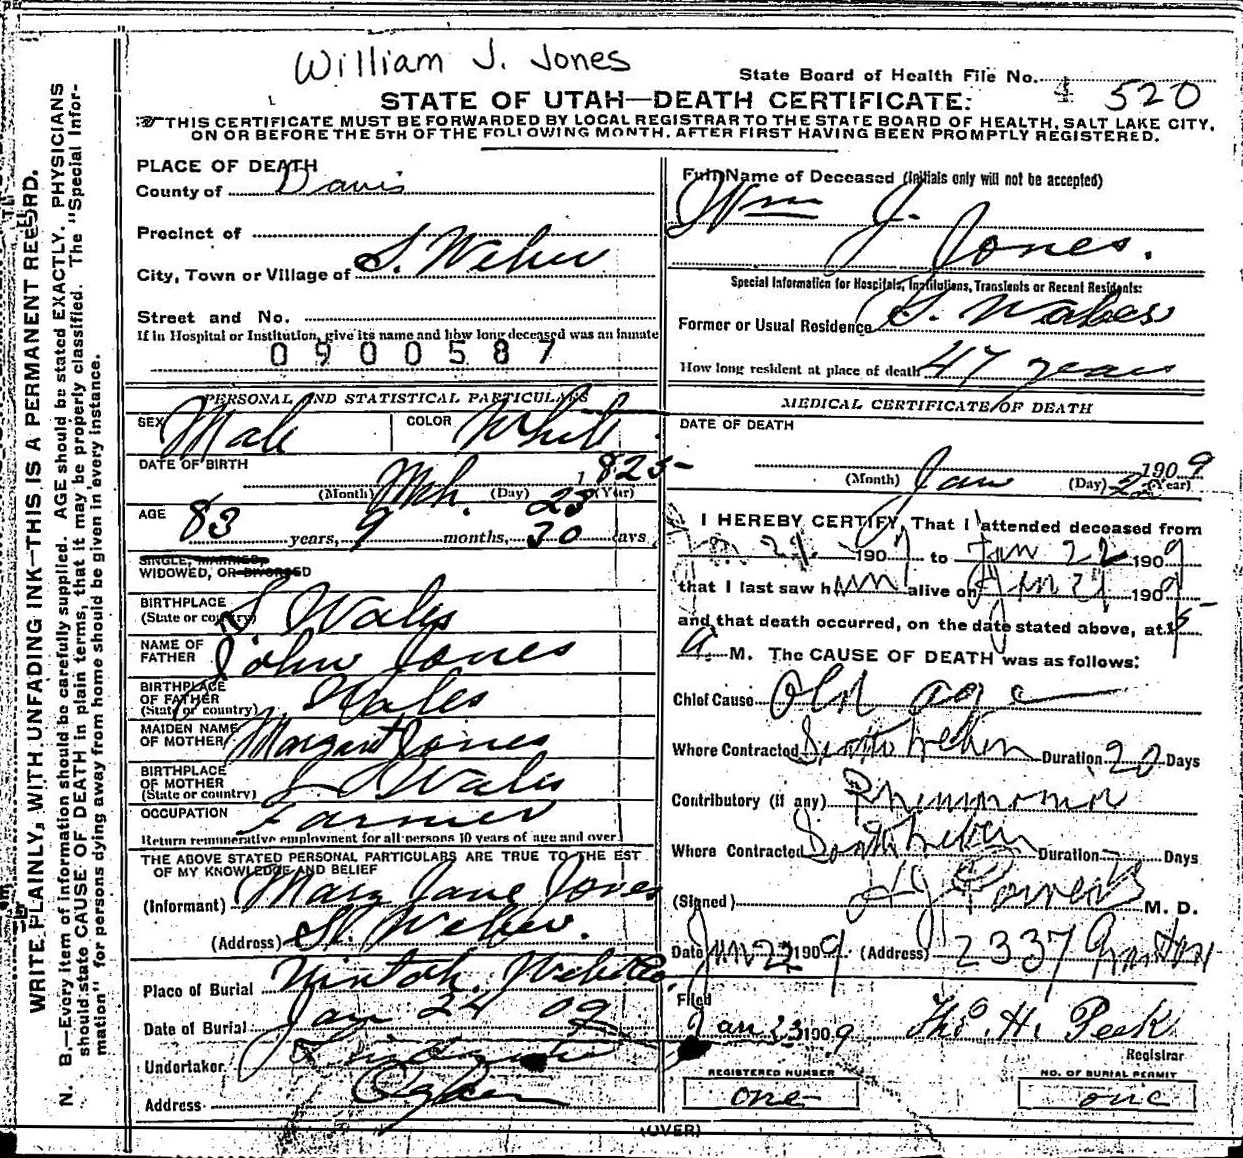 William J. Jones
State Board of Health File No. 4 520
STATE OF UTAH—DEATH CERTIFICATE.
THIS CERTIFICATE MUST BE FORWARDED BY LOCAL REGISTRAR TO THE STATE BOARD OF HEALTH, SALT LAKE CITY,
ON OR BEFORE THE 5TH OF THE FOLLOWING MONTH, AFTER FIRST HAVING BEEN PROMPTLY REGISTERED.
WRITE PLAINLY, WITH UNFADING INK—THIS IS A PERMANENT RECORD.
N. B.—Every item of information should be carefully supplied. AGE should be stated EXACTLY. PHYSICIANS
should state CAUSE OF DEATH in plain terms, that it may be properly classified. The "Special Infor-
mation" for persons dying away from home should be given in every instance.
PLACE OF DEATH
County of Davis
Precinct of
City, Town or Village of S. Weber
Street and No.
If in Hospital or Institution, give its name and how long deceased was an inmate
0900587
PERSONAL AND STATISTICAL PARTICULARS
SEX Male COLOR White
DATE OF BIRTH
Mch. 23 1825
(Month) (Day) (Year)
AGE
83 years, 9 months, 30 days
SINGLE, MARRIED,
WIDOWED, OR DIVORCED
BIRTHPLACE
(State or country) S Wales
NAME OF
FATHER John Jones
BIRTHPLACE
OF FATHER
(State or country) Wales
MAIDEN NAME
OF MOTHER Margaret Jones
BIRTHPLACE
OF MOTHER
(State or country) S Wales
OCCUPATION Farmer
Return remunerative employment for all persons 10 years of age and over
THE ABOVE STATED PERSONAL PARTICULARS ARE TRUE TO THE EST
OF MY KNOWLEDGE AND BELIEF
(Informant) Mary Jane Jones
(Address) So. Weber.
Place of Burial Uintah, Weber Co.
Date of Burial Jan 24 09
Undertaker
Address Ogden
Full Name of Deceased (Initials only will not be accepted)
Wm J.
Jones.
Special Information for Hospitals, Institutions, Transients or Recent Residents:
Former or Usual Residence S. Wales
How long resident at place of death 47 years
MEDICAL CERTIFICATE OF DEATH
DATE OF DEATH
Jan 22 1909
(Month) (Day) (Year)
I HEREBY CERTIFY, That I attended deceased from
Jan 21 1909 to Jan 22 1909
that I last saw him alive on Jan 21 1909
and that death occurred, on the date stated above, at 5
a. M. The CAUSE OF DEATH was as follows:
Chief Cause Old age
Where Contracted South Weber Duration 20 Days
Contributory (if any) Pneumonia
Where Contracted South Weber Duration 7 Days
(Signed) M. D.
Date Jan 22 1909. (Address) 2337
Filed
Jan 23 1909 Thos. H. Peek
Registrar
REGISTERED NUMBER
one
NO. OF BURIAL PERMIT
one
(OVER)